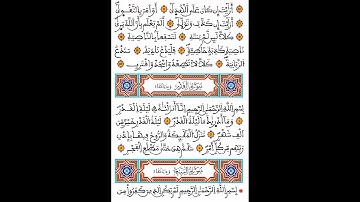 أرٰيت إن كان على الهدى أو امر بالتقوى
أرٰيت إن كذب وتولى ألم يعلم بأن الله يرى
كلا لئن لم ينته لنسفعا بالناصية
ناصية كاذبة خاطئة فليدع ناديه سندع
الزبانية كلا لا تطعه واسجد واقترب
سورة القدر
بسم الله الرحمن الرحيم إنا أنزلناه في ليلة القدر
وما أدريك ما ليلة القدر ليلة القدر خير من
ألف شهر تنزل الملئكة والروح فيها بإذن
ربهم من كل أمر سلم هي حتى مطلع الفجر
سورة البينة
بسم الله الرحمن الرحيم لم يكن الذين كفروا من